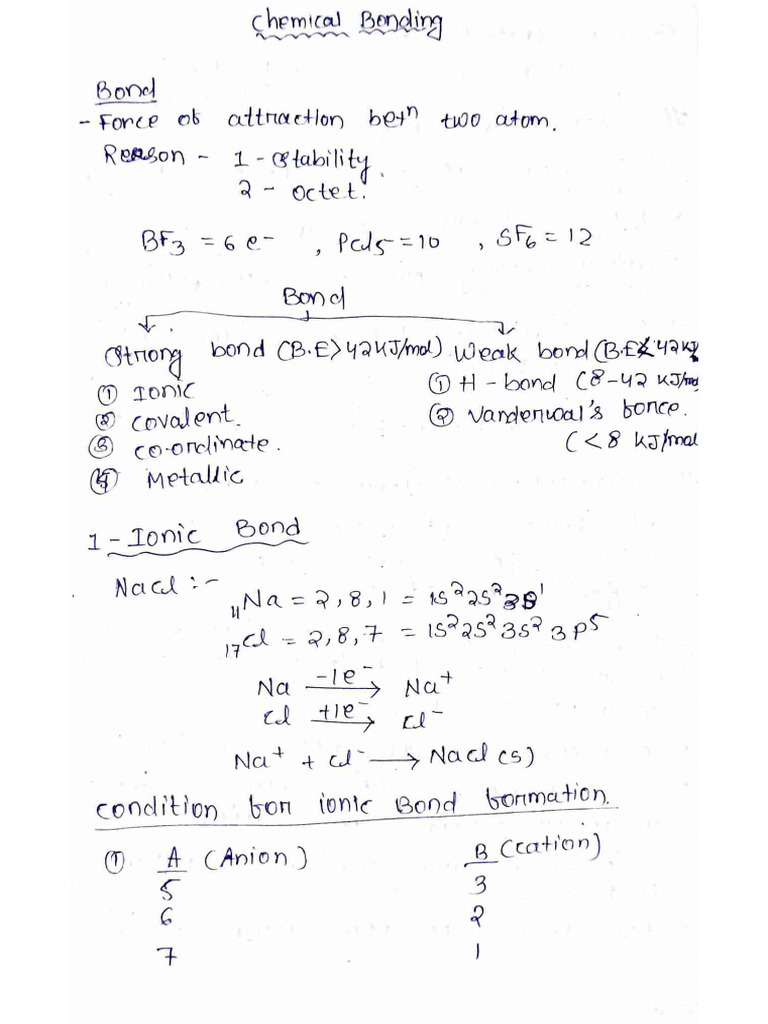 Chemical Bonding
Bond
- Force of attraction betⁿ two atom.
Reason - 1 - Stability.
2 - octet.
BF₃ = 6 e⁻ , PCl₅ = 10 , SF₆ = 12
Bond
Strong bond (B.E > 42 KJ/mol) Weak bond (B.E < 42 KJ
① Ionic ① H - bond (8-42 KJ/mol
② Covalent. ② Vanderwal's force.
③ co-ordinate. (< 8 KJ/mol
④ Metallic
1 - Ionic Bond
NaCl :-
₁₁Na = 2, 8, 1 = 1s² 2s² 3s¹
₁₇Cl = 2, 8, 7 = 1s² 2s² 3s² 3p⁵
Na -1e⁻ → Na⁺
Cl +1e⁻ → Cl⁻
Na⁺ + Cl⁻ → NaCl (s)
Condition for ionic Bond formation.
① A (Anion) B (cation)
5 3
6 2
7 1